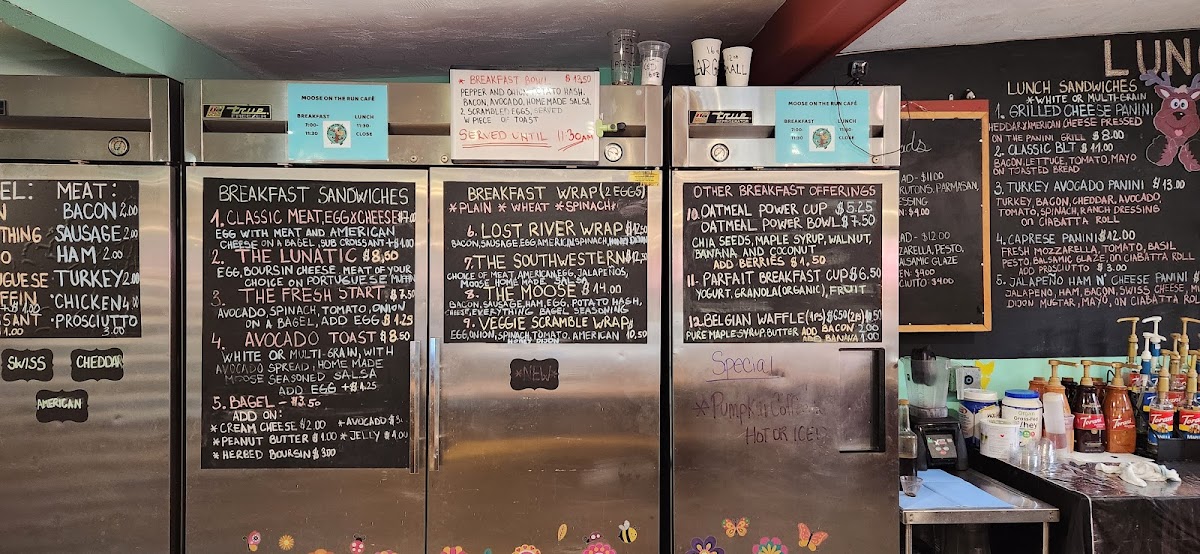 MEAT:
BACON 2.00
SAUSAGE 2.00
HAM 2.00
TURKEY 2.00
CHICKEN 4.00
PROSCIUTTO
3.00
SWISS
CHEDDAR
AMERICAN
true
FREEZER
MOOSE ON THE RUN CAFÉ
BREAKFAST
7:00-
11:30
LUNCH
11:30-
CLOSE
BREAKFAST SANDWICHES
1. CLASSIC MEAT, EGG & CHEESE
EGG WITH MEAT AND AMERICAN
CHEESE ON A BAGEL, SUB CROISSANT + $1.00
2. THE LUNATIC $8.50
EGG, BOURSIN CHEESE, MEAT OF YOUR
CHOICE ON PORTUGUESE MUFFIN
3. THE FRESH START $7.50
AVOCADO, SPINACH, TOMATO, ONION
ON A BAGEL, ADD EGG $1.25
4. AVOCADO TOAST $8.50
WHITE OR MULTI-GRAIN, WITH
AVOCADO SPREAD, HOME MADE
MOOSE SEASONED SALSA
ADD EGG +$1.25
5. BAGEL - $3.50
ADD ON:
* CREAM CHEESE $2.00 * AVOCADO
* PEANUT BUTTER $1.00 * JELLY $1.00
* HERBED BOURSIN $3.00
* BREAKFAST BOWL $13.50
PEPPER AND ONION POTATO HASH,
BACON, AVOCADO, HOMEMADE SALSA,
2 SCRAMBLED EGGS, SERVED
W PIECE OF TOAST
SERVED UNTIL 11:30AM
BREAKFAST WRAP (2 EGGS)
* PLAIN * WHEAT * SPINACH
6. LOST RIVER WRAP
BACON, SAUSAGE, EGG, AMERICAN, SPINACH,
7. THE SOUTHWESTERN
CHOICE OF MEAT, AMERICAN, EGG, JALAPEÑOS,
MOOSE HOME MADE SALSA
8. THE MOOSE $14.00
BACON, SAUSAGE, HAM, EGG, POTATO HASH,
CHEESE, EVERYTHING BAGEL SEASONING
9. VEGGIE SCRAMBLE WRAP
EGG, ONION, SPINACH, TOMATO, AMERICAN 10.50
*NEW*
LARGE
SMALL
true
REFRIGERATOR
MOOSE ON THE RUN CAFÉ
BREAKFAST
7:00-
11:30
LUNCH
11:30-
CLOSE
OTHER BREAKFAST OFFERINGS
10. OATMEAL POWER CUP $5.25
OATMEAL POWER BOWL $7.50
CHIA SEEDS, MAPLE SYRUP, WALNUT,
BANANA, AND COCONUT
ADD BERRIES $1.50
11. PARFAIT BREAKFAST CUP $6.50
YOGURT, GRANOLA (ORGANIC), FRUIT
12. BELGIAN WAFFLE
PURE MAPLE SYRUP, BUTTER ADD BACON 2.00
ADD BANANA 1.00
Special
*Pumpkin Coffee
HOT OR ICE!
$11.00
CROUTONS, PARMESAN,
DRESSING
$4.00
$12.00
MOZZARELLA, PESTO,
BALSAMIC GLAZE
$4.00
LUNCH SANDWICHES
* WHITE OR MULTI-GRAIN
1. GRILLED CHEESE PANINI
CHEDDAR & AMERICAN CHEESE PRESSED
ON THE PANINI GRILL $8.00
2. CLASSIC BLT $11.00
BACON, LETTUCE, TOMATO, MAYO
ON TOASTED BREAD
3. TURKEY AVOCADO PANINI $13.00
TURKEY, BACON, CHEDDAR, AVOCADO,
TOMATO, SPINACH, RANCH DRESSING
ON CIABATTA ROLL
4. CAPRESE PANINI $12.00
FRESH MOZZARELLA, TOMATO, BASIL
PESTO, BALSAMIC GLAZE, ON CIABATTA ROLL
ADD PROSCIUTTO $3.00
5. JALAPEÑO HAM N' CHEESE PANINI
JALAPEÑO HAM, BACON, SWISS CHEESE,
DIJON MUSTAR, MAYO, ON CIABATTA
Torani